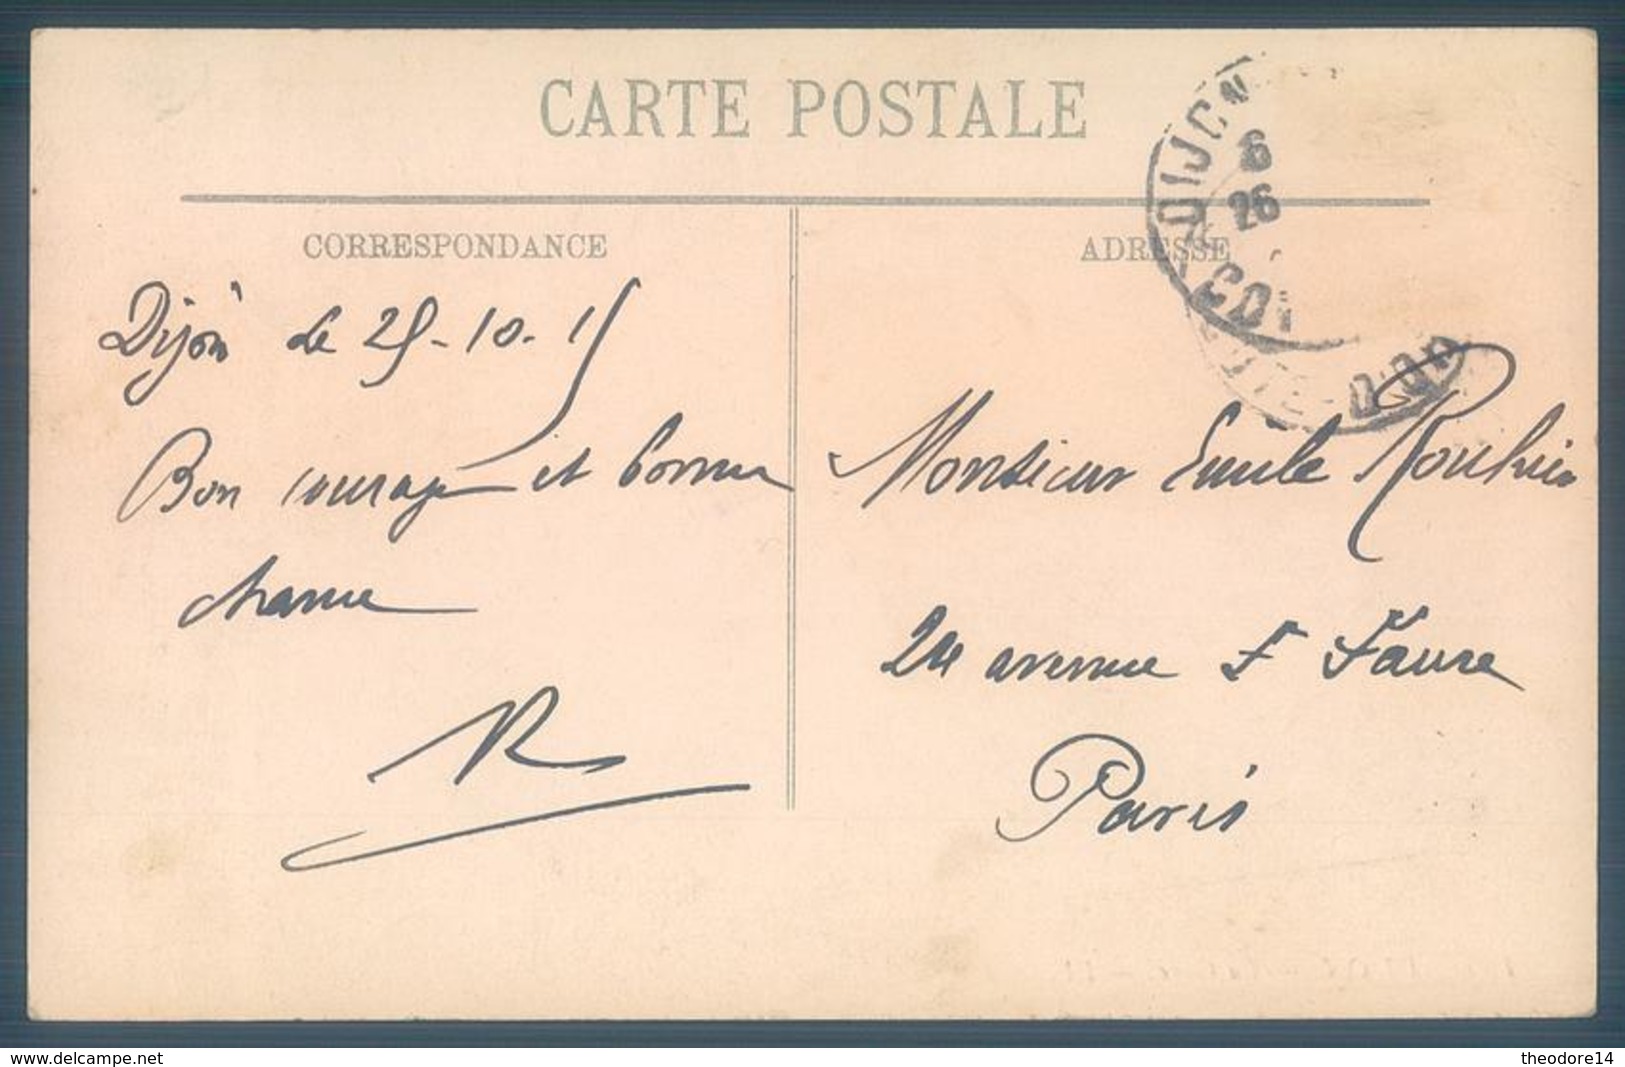 CARTE POSTALE
DIJON
6
26
COTE-D'OR
CORRESPONDANCE
ADRESSE
Dijon le 25-10-15
Bon courage et bonne
chance
R
Monsieur Emile Rouhier
24 avenue F Faure
Paris
www.delcampe.net
theodore14